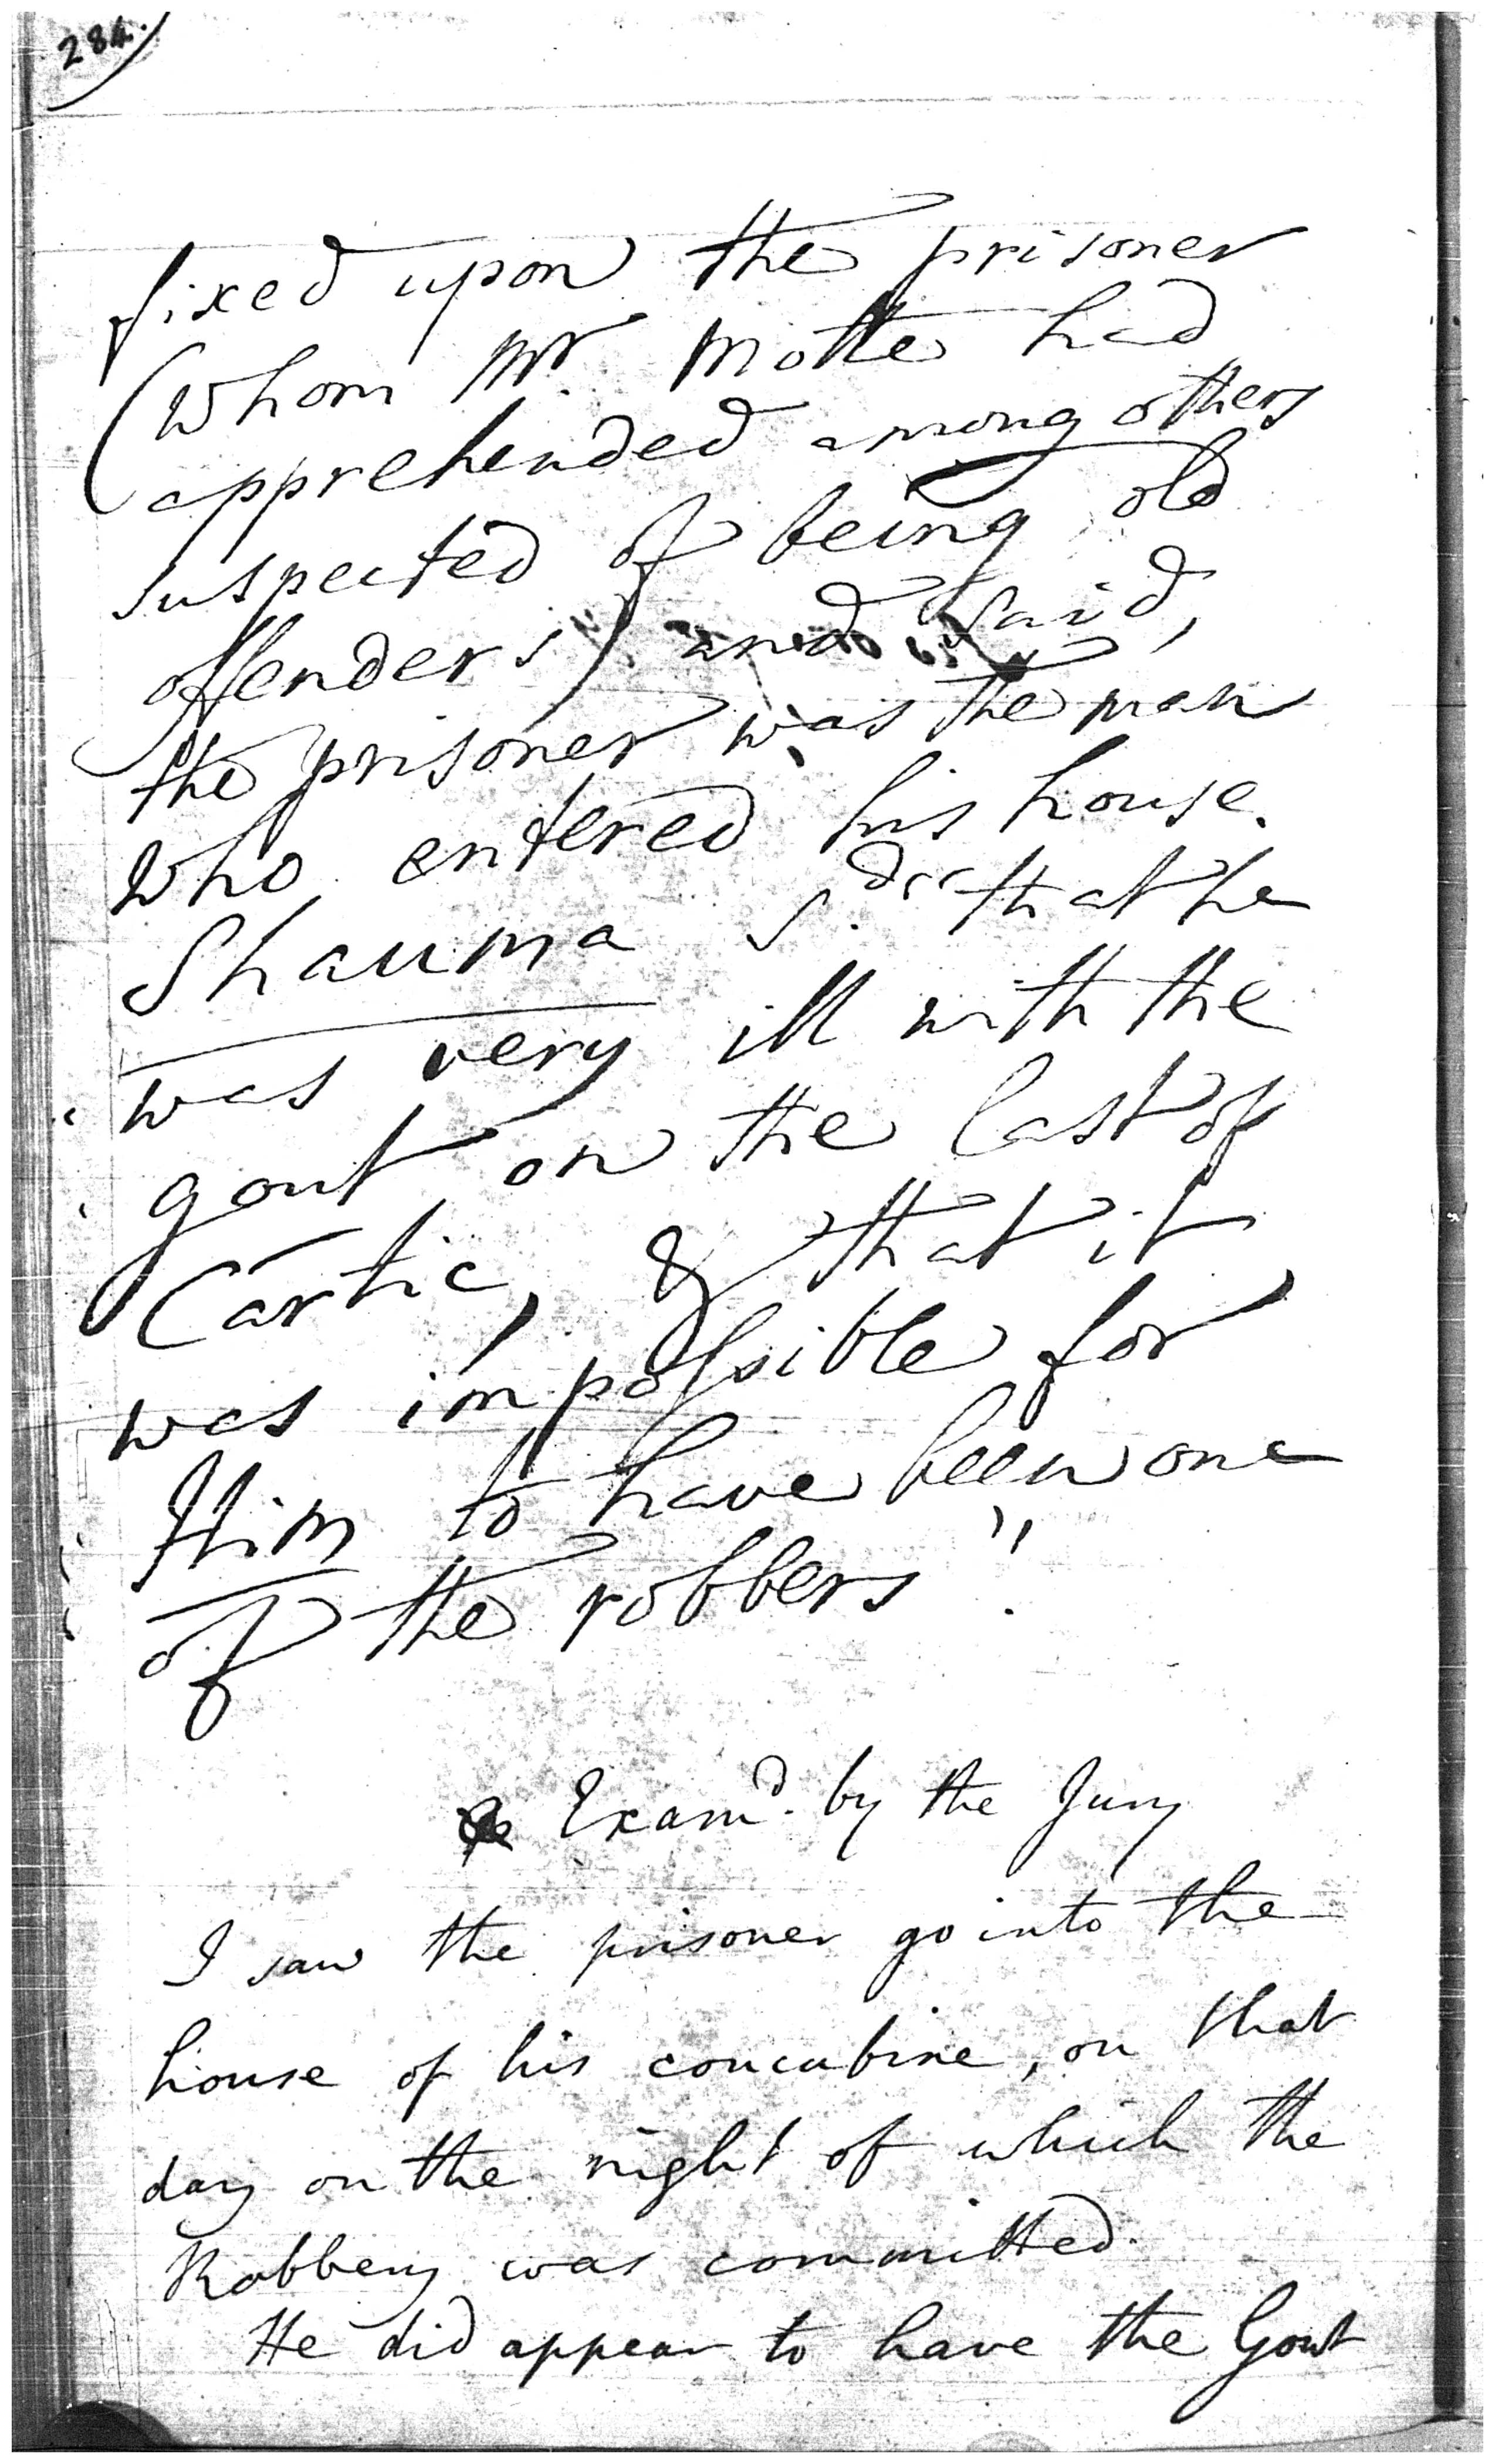 284.
fixed upon the prisoner
(whom Mr. Motte had
apprehended among others
suspected of being old
offenders) and said,
the prisoner was the man
who entered his house.
Shauma sd. "that he
was very ill with the
gout on the last of
Cartic, & that it
was impossible for
Him to have been one
of the robbers".
Examd. by the Jury
I saw the prisoner go into the
house of his concubine, on that
day on the night of which the
Robbery was committed.
He did appear to have the Gout